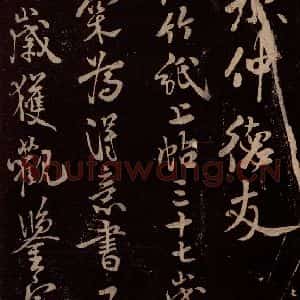 仲德友
竹紙上帖三十七歲
策為得意書
歲獲觀鑒
Shufawang.CN